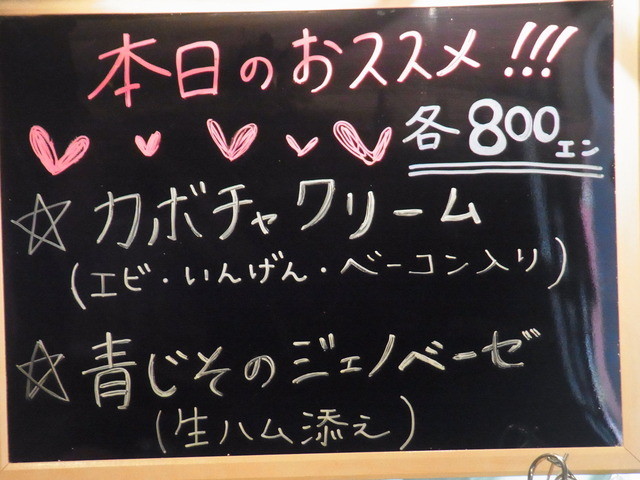 本日のおススメ!!!
各800エン
☆カボチャクリーム
(エビ・いんげん・ベーコン入り)
☆青じそのジェノベーゼ
(生ハム添え)